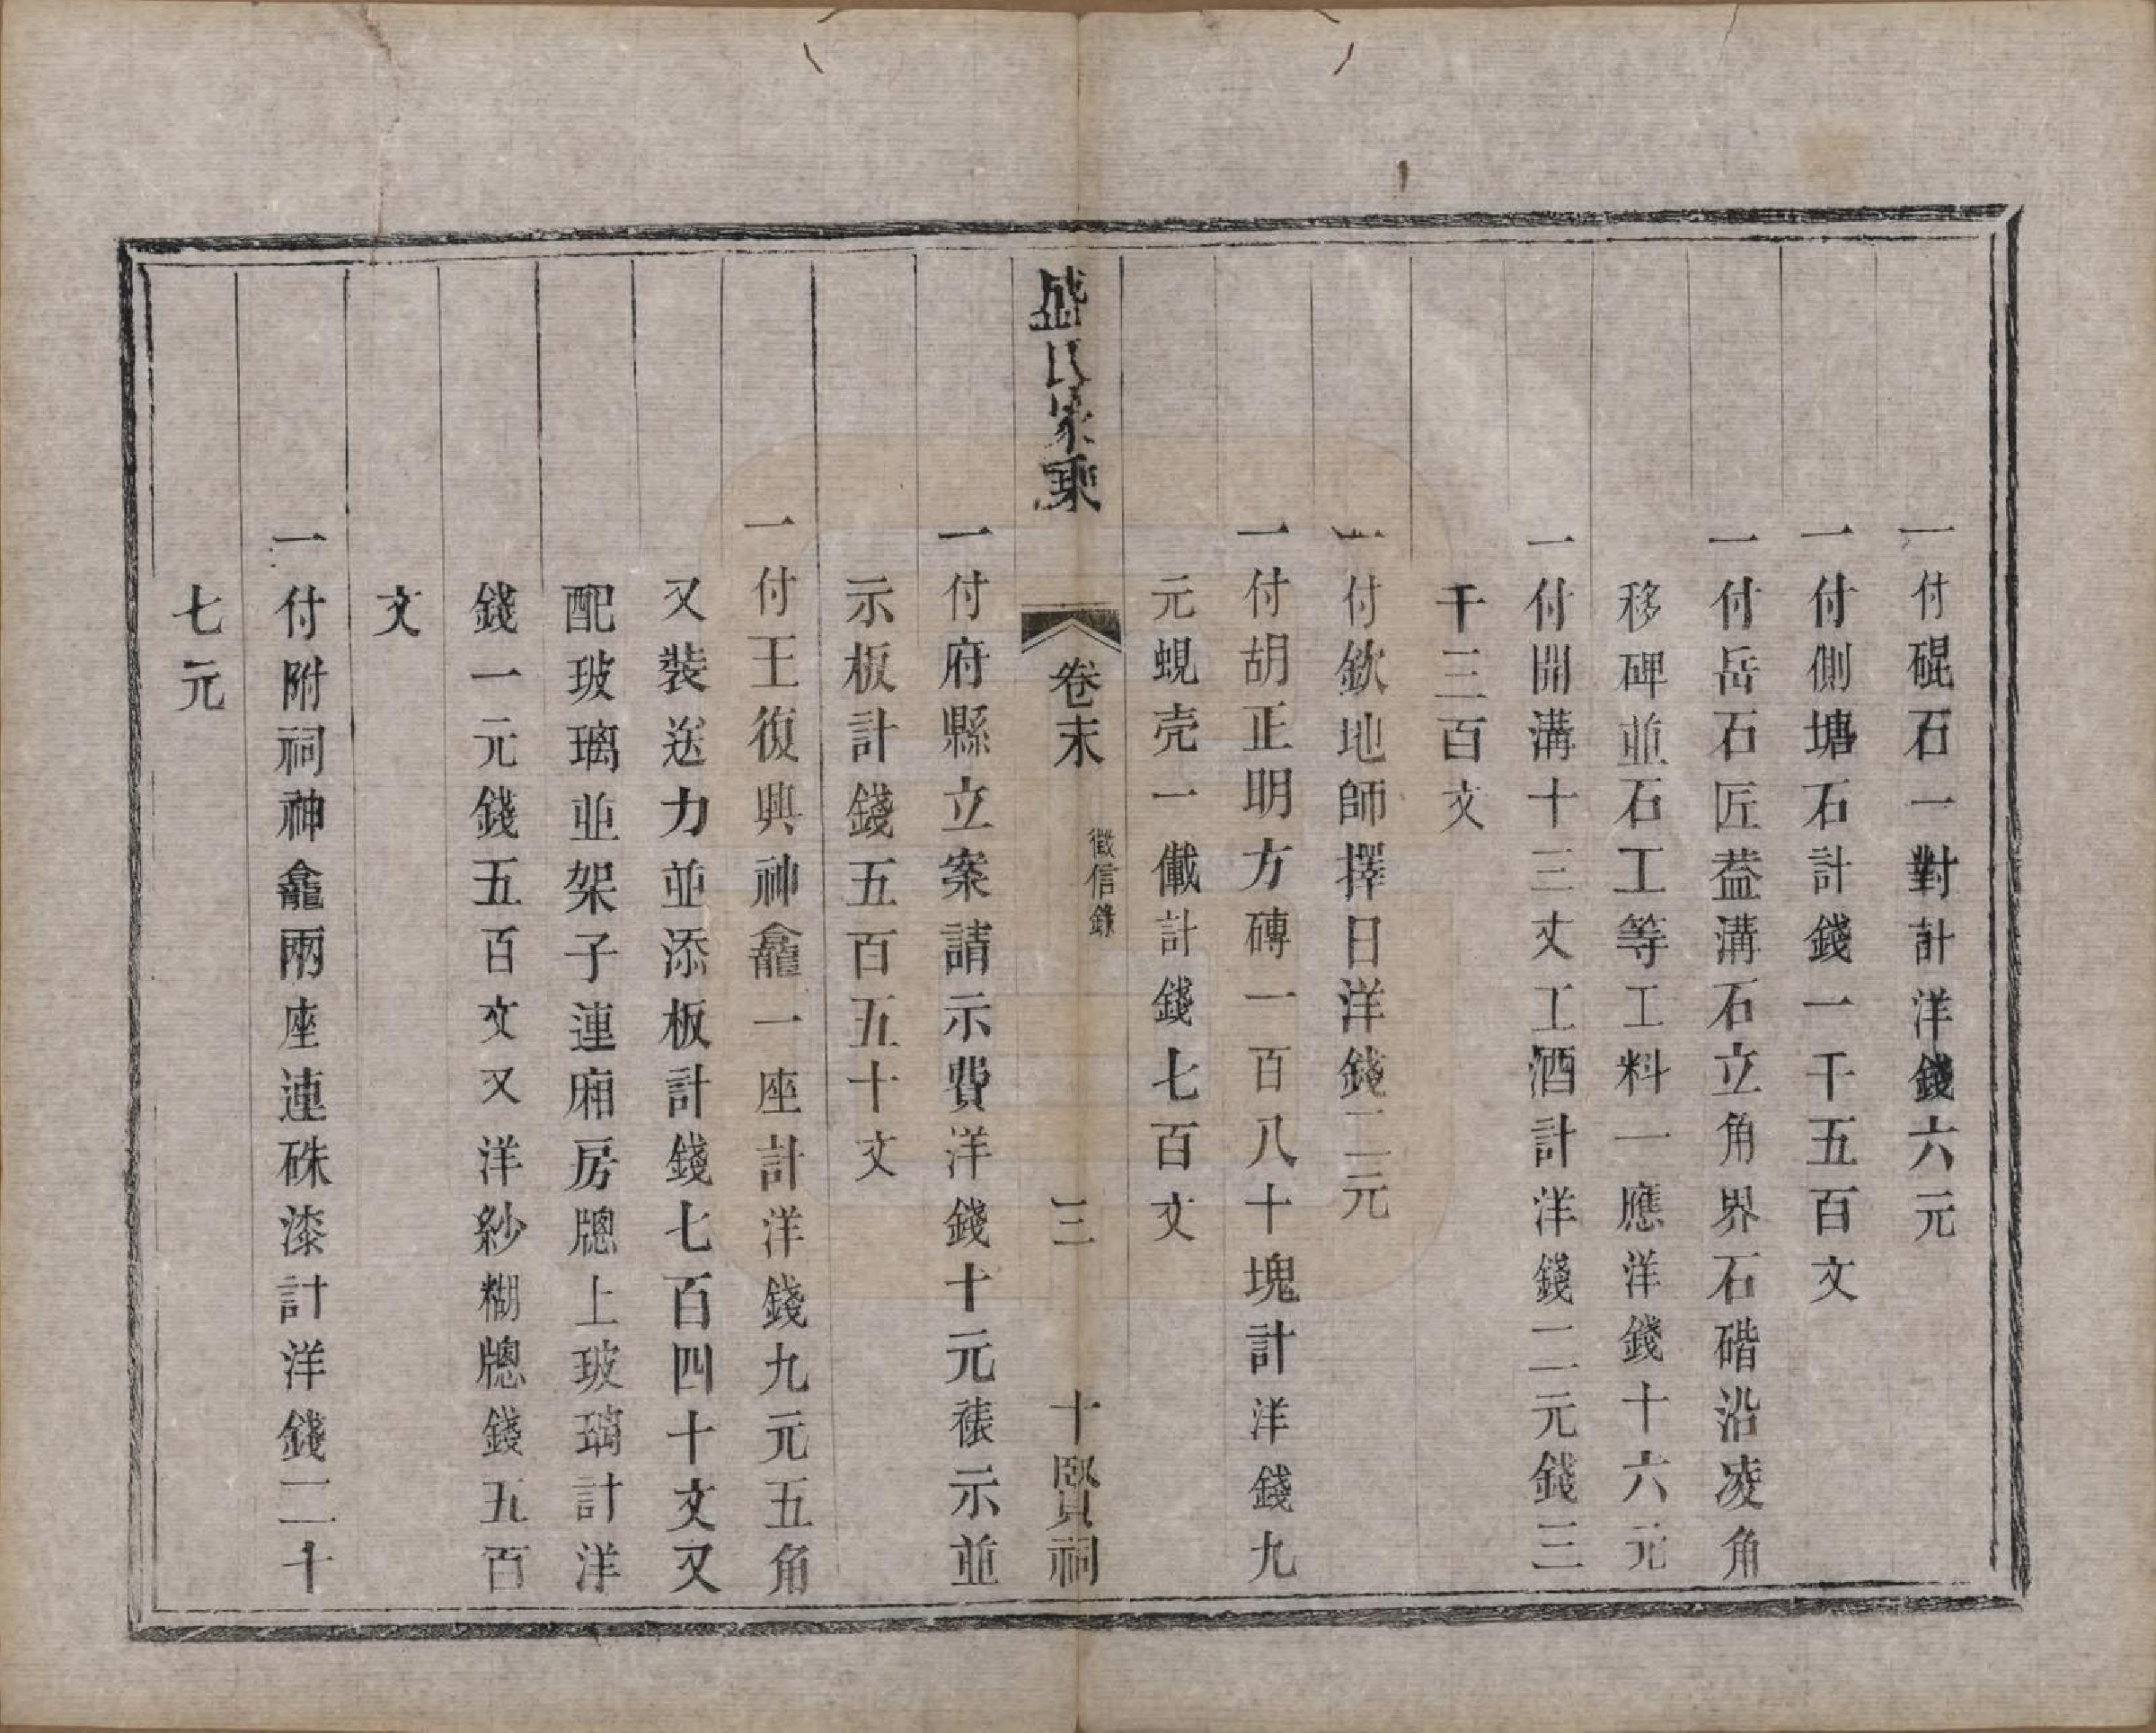 一付硍石一對計洋錢六元
一付側塘石計錢一千五百文
一付岳石匠葢溝石立角界石碏沿凌角
移碑並石工等工料一應洋錢十六元
一付開溝十三丈工酒計洋錢二元錢三
千三百文
一付欽地師擇日洋錢二元
一付胡正明方磚一百八十塊計洋錢九
元蜆壳一儎計錢七百文
盛氏家乘
卷末
徵信錄
三
十賢祠
一付府縣立案請示費洋錢十元裱示並
示板計錢五百五十文
一付王復興神龕一座計洋錢九元五角
又裝送力並添板計錢七百四十文又
配玻璃並架子連廂房牕上玻璃計洋
錢一元錢五百文又洋紗糊牕錢五百
文
一付附祠神龕兩座連硃漆計洋錢二十
七元